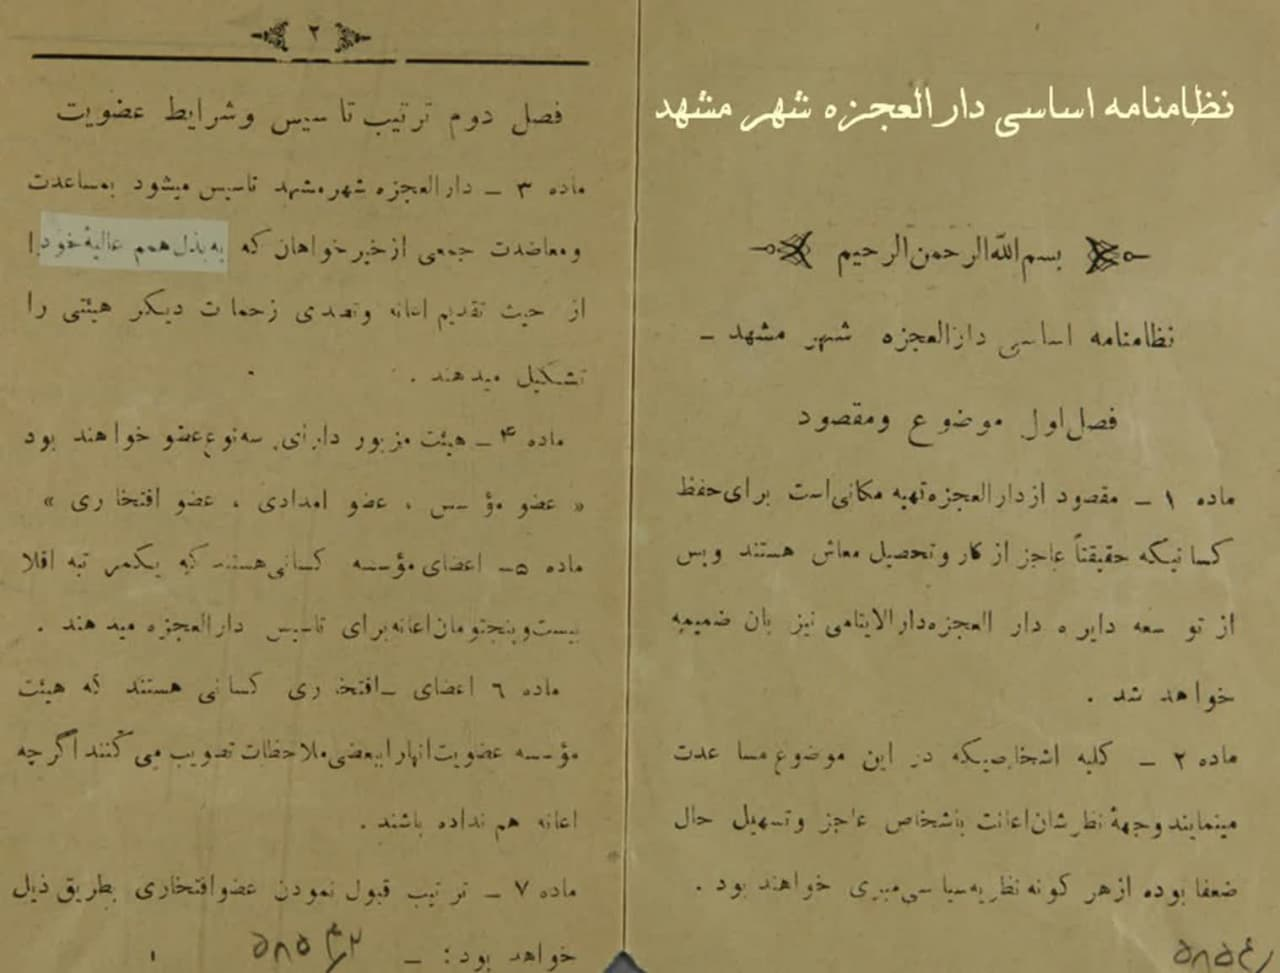 نظامنامه اساسی دارالعجزه شهر مشهد
بسم الله الرحمن الرحیم
نظامنامه اساسی دارالعجزه شهر مشهد ـ
فصل اول موضوع ومقصود
ماده ۱ ـ مقصود از دارالعجزه تهیه مکانی است برای حفظ
کسانیکه حقیقتاً عاجز از کار وتحصیل معاش هستند وپس
از توسعه دایره دار العجزه دارالایتامی نیز بان ضمیمه
خواهد شد .
ماده ۲ ـ کلیه اشخاصیکه در این موضوع مساعدت
مینمایند وجههٔ نظرشان اعانت باشخاص عاجز وتسهیل حال
ضعفا بوده از هر گونه نظریه سیاسی مبری خواهند بود .
۲
فصل دوم ترتیب تاسیس وشرایط عضویت
ماده ۳ ـ دارالعجزه شهر مشهد تاسیس میشود بمساعدت
ومعاضدت جمعی از خیرخواهان که به بذل همم عالیهٔ خود را
از حیث تقدیم اعانه وتصدی زحمات دیگر هیئتی را
تشکیل میدهند .
ماده ۴ ـ هیئت مزبور دارای سه نوع عضو خواهند بود
« عضو مؤسس ، عضو امدادی ، عضو افتخاری »
ماده ۵ـ اعضای مؤسسه کسانی هستند که یکمرتبه اقلا
بیست وپنجتومان اعانه برای تاسیس دارالعجزه میدهند .
ماده ٦ اعضای ـ افتخاری کسانی هستند که هیئت
مؤسسه عضویت انها را ببعضی ملاحظات تصویب می کنند اگر چه
اعانه هم نداده باشند .
ماده ۷ ـ ترتیب قبول نمودن عضو افتخاری بطریق ذیل
خواهد بود : ـ